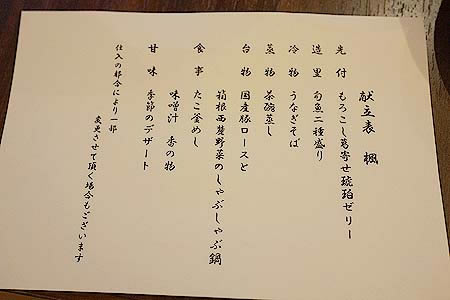 献立表 楓
先付 もろこし葛寄せ琥珀ゼリー
造里 旬魚二種盛り
冷物 うなぎそば
蒸物 茶碗蒸し
台物 国産豚ロースと
箱根西麓野菜のしゃぶしゃぶ鍋
食事 たこ釜めし
味噌汁 香の物
甘味 季節のデザート
仕入の都合により一部
変更させて頂く場合もございます